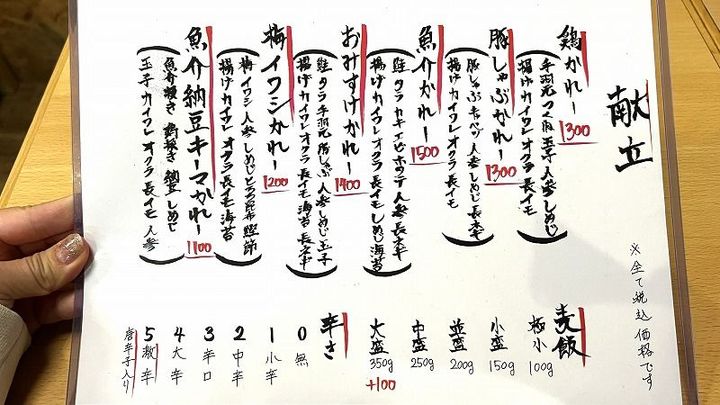 献立
鶏かれー 1300
(手羽元 つくね 玉子 人参 しめじ
揚げ カイワレ オクラ 長イモ)
豚しゃぶかれー 1300
(豚しゃぶ キャベツ 人参 しめじ 長ネギ
揚げ カイワレ オクラ 長イモ)
魚介かれー 1500
(鮭 タラ カキ エビ ホタテ 人参 長ネギ
揚げ カイワレ オクラ 長イモ しめじ 海苔)
おみすけかれー 1400
(鮭 タラ 手羽元 豚しゃぶ 人参 しめじ 玉子
揚げ カイワレ オクラ 長イモ 海苔 長ネギ)
梅イワシかれー 1200
(梅 イワシ 人参 しめじ とろろ昆布 鰹節
揚げ カイワレ オクラ 長イモ 海苔)
魚介納豆キーマかれー 1100
(魚介挽き 鶏挽き 納豆 しめじ
玉子 カイワレ オクラ 長イモ 人参)
※全て税込価格です
麦飯
極小 100g
小盛 150g
並盛 200g
中盛 250g
大盛 350g +100
辛さ
0 無
1 小辛
2 中辛
3 辛口
4 大辛
5 激辛
唐辛子入り